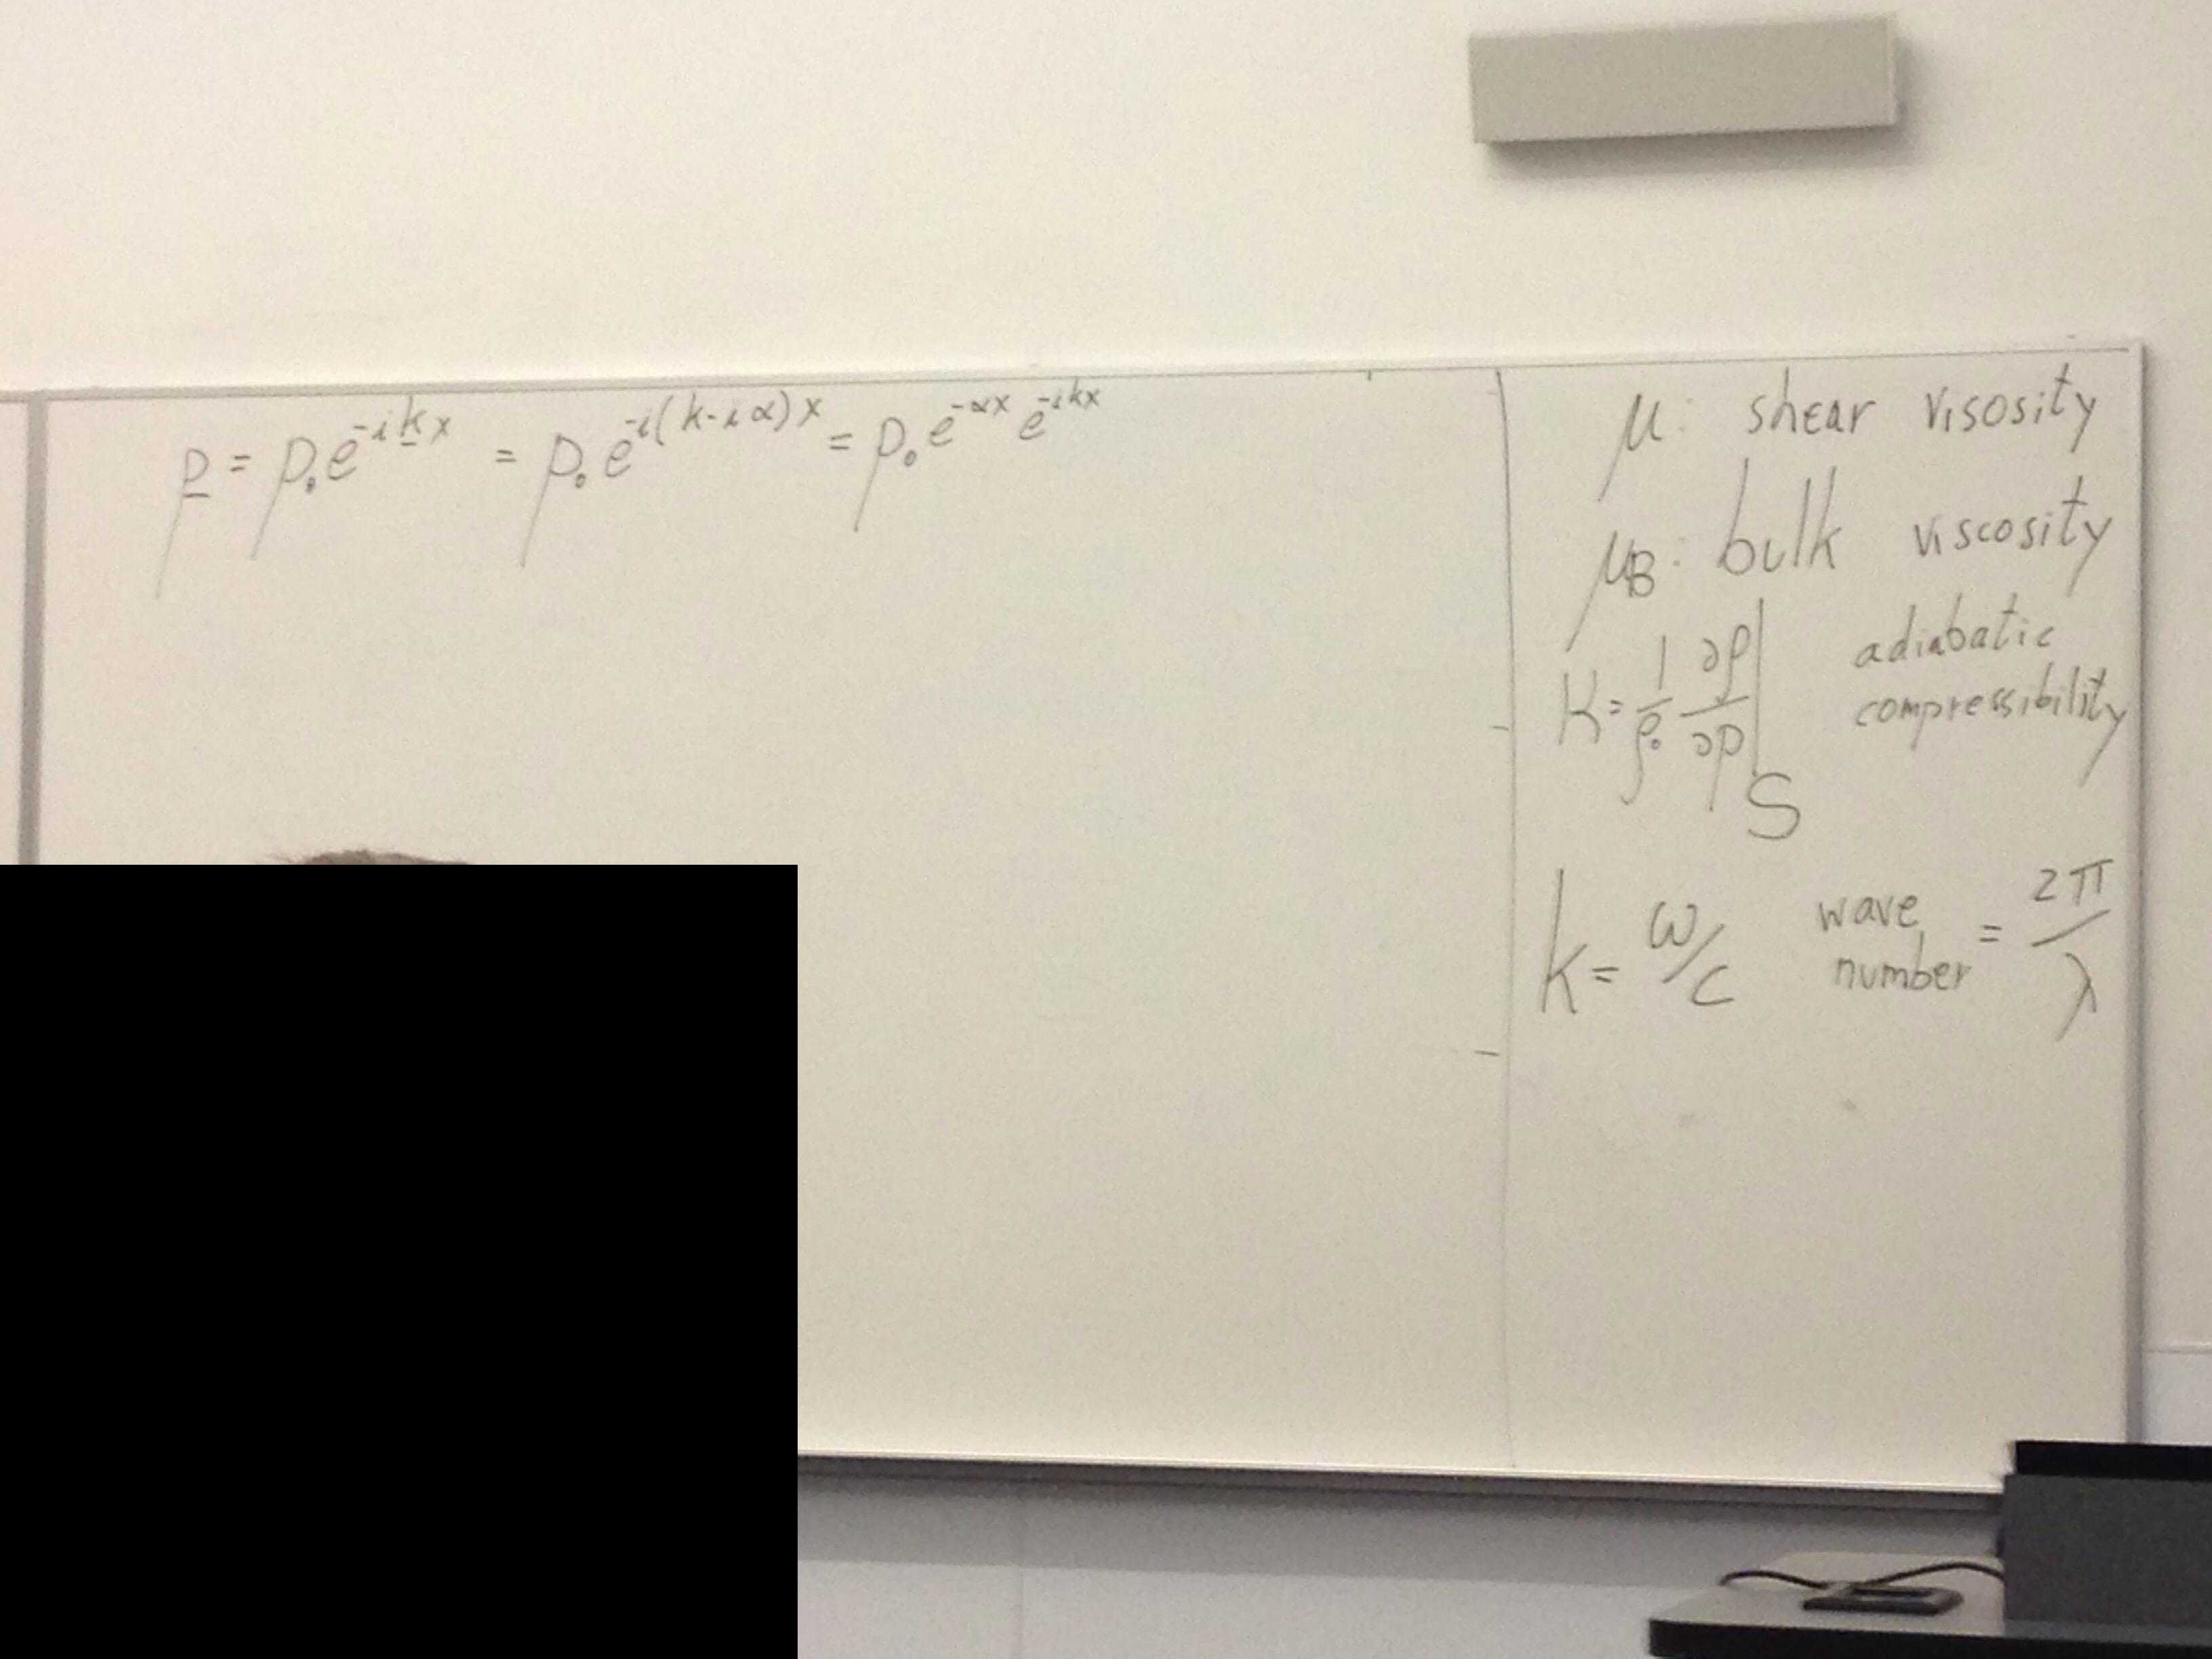 p = p₀e^{-ikx} = p₀e^{-i(k-iα)x} = p₀e^{-αx} e^{-ikx}
μ: shear visosity
μ_B: bulk viscosity
K = 1/ρ₀ ∂ρ/∂p |_S adiabatic
compressibility
k = ω/c wave number = 2π/λ